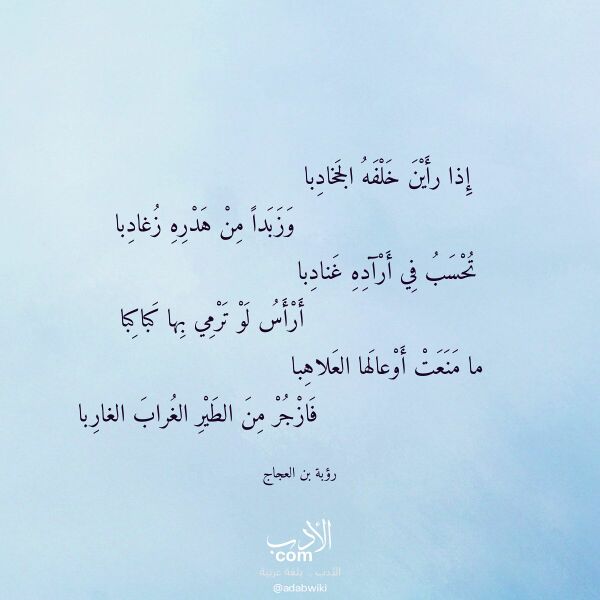 إِذا رأَيْنَ خَلْفَهُ الجَخادِبا
وَزَبَداً مِنْ هَدْرِهِ زُغادِبا
تُحْسَبُ فِي أَرْآدِهِ غَنادِبا
أَرْأَسُ لَوْ تَرْمِي بِها كَباكِبا
ما مَنَعَتْ أَوْعالَها العَلاهِبا
فَازْجُرْ مِنَ الطَيْرِ الغُرابَ الغارِبا
رؤبة بن العجاج
الأدب
com
الأدب .. بلغة عربية
@adabwiki